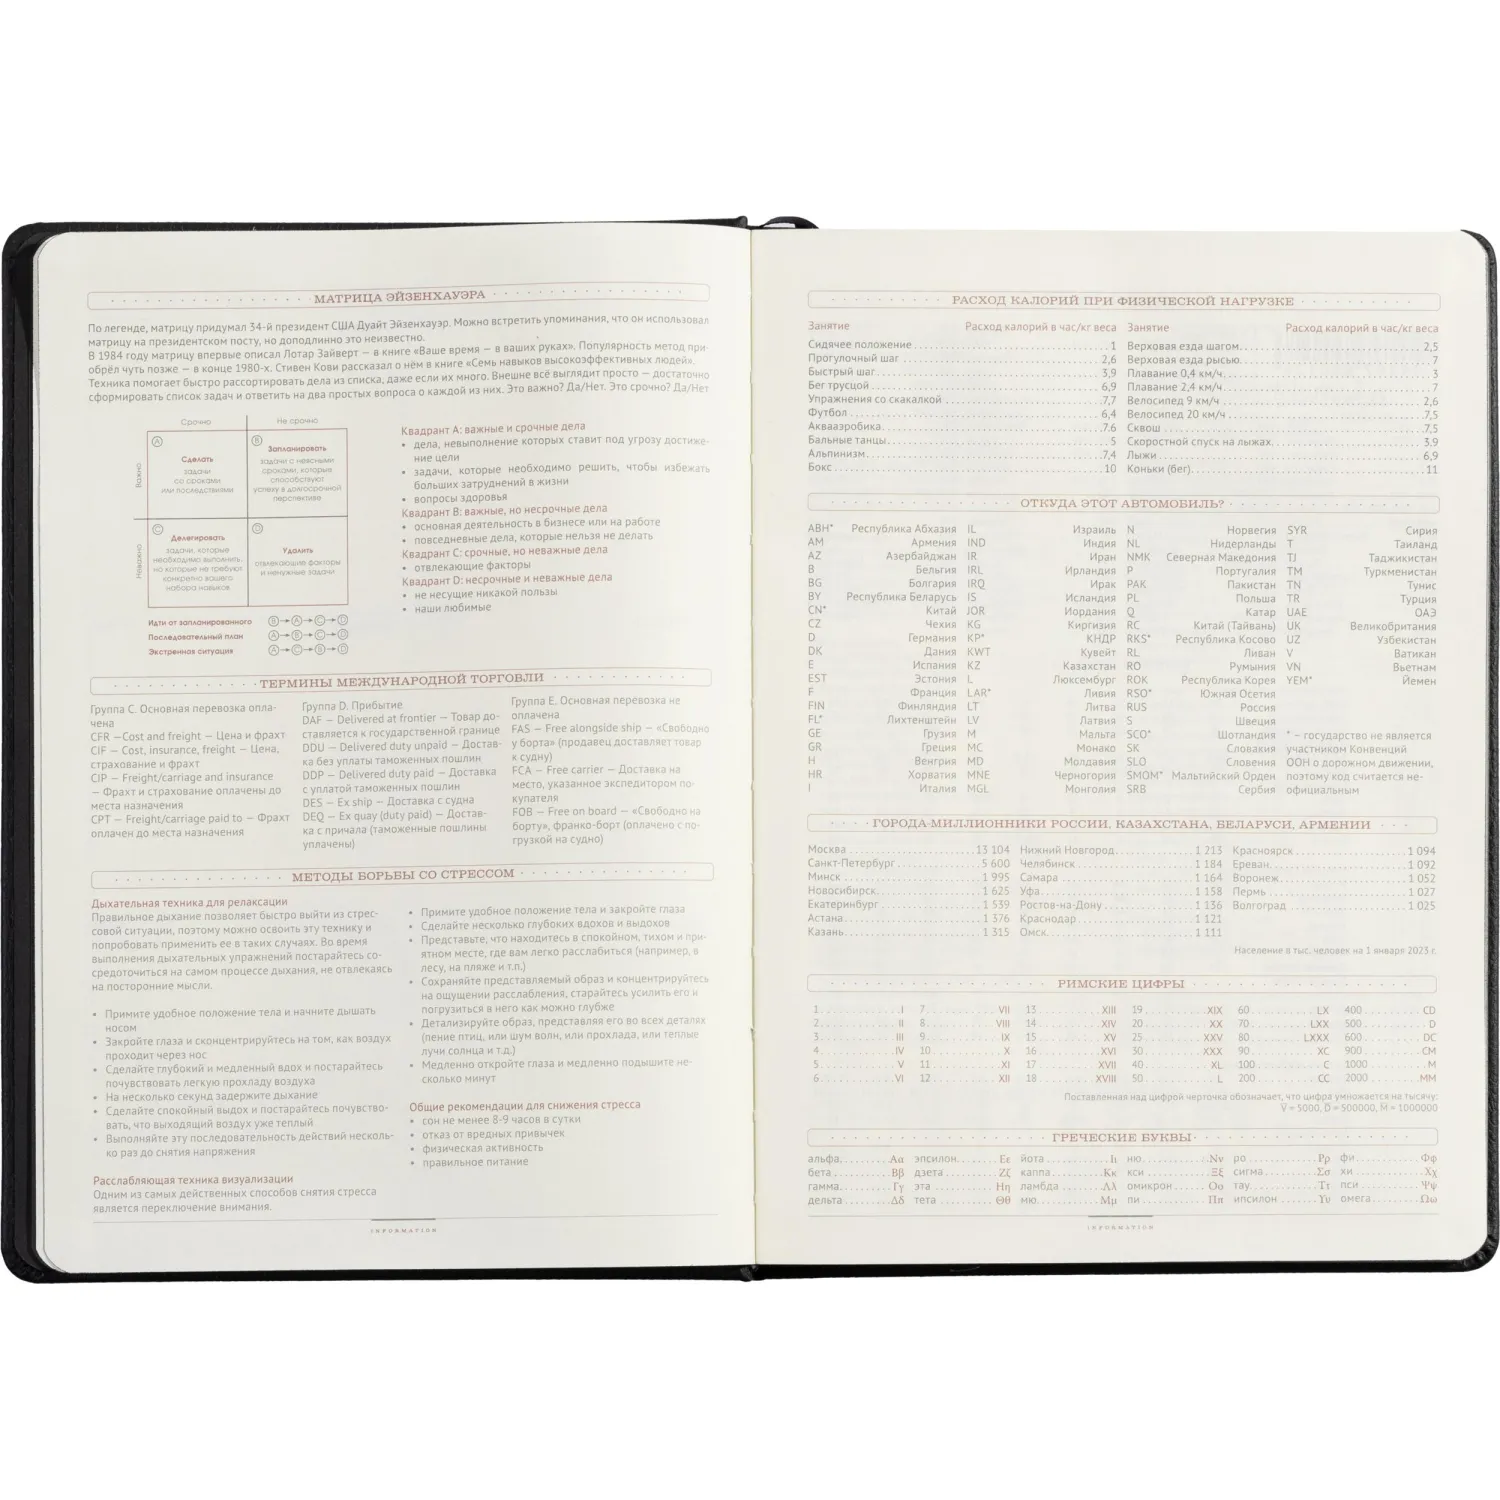 МАТРИЦА ЭЙЗЕНХАУЭРА
По легенде, матрицу придумал 34-й президент США Дуайт Эйзенхауэр. Можно встретить упоминания, что он использовал
матрицу на президентском посту, но доподлинно это неизвестно.
В 1984 году матрицу впервые описал Лотар Зайверт — в книге «Ваше время — в ваших руках». Популярность метод при-
обрёл чуть позже — в конце 1980-х. Стивен Кови рассказал о нём в книге «Семь навыков высокоэффективных людей».
Техника помогает быстро рассортировать дела из списка, даже если их много. Внешне всё выглядит просто — достаточно
сформировать список задач и ответить на два простых вопроса о каждой из них. Это важно? Да/Нет. Это срочно? Да/Нет
Срочно Не срочно
Важно
A
Сделать
задачи
со сроками
или последствиями
B
Запланировать
задачи с неясными
сроками, которые
способствуют
успеху в долгосрочной
перспективе
Неважно
C
Делегировать
задачи, которые
необходимо выполнить,
но которые не требуют
конкретно вашего
набора навыков
D
Удалить
отвлекающие факторы
и ненужные задачи
Идти от запланированного B→A→C→D
Последовательный план A→B→C→D
Экстренная ситуация A→C→B→D
Квадрант A: важные и срочные дела
• дела, невыполнение которых ставит под угрозу достиже-
ние цели
• задачи, которые необходимо решить, чтобы избежать
больших затруднений в жизни
• вопросы здоровья
Квадрант B: важные, но несрочные дела
• основная деятельность в бизнесе или на работе
• повседневные дела, которые нельзя не делать
Квадрант C: срочные, но неважные дела
• отвлекающие факторы
Квадрант D: несрочные и неважные дела
• не несущие никакой пользы
• наши любимые
ТЕРМИНЫ МЕЖДУНАРОДНОЙ ТОРГОВЛИ
Группа C. Основная перевозка опла-
чена
CFR —Cost and freight — Цена и фрахт
CIF — Cost, insurance, freight — Цена,
страхование и фрахт
CIP — Freight/carriage and insurance
— Фрахт и страхование оплачены до
места назначения
CPT — Freight/carriage paid to — Фрахт
оплачен до места назначения
Группа D. Прибытие
DAF — Delivered at frontier — Товар до-
ставляется к государственной границе
DDU — Delivered duty unpaid — Достав-
ка без уплаты таможенных пошлин
DDP — Delivered duty paid — Доставка
с уплатой таможенных пошлин
DES — Ex ship — Доставка с судна
DEQ — Ex quay (duty paid) — Достав-
ка с причала (таможенные пошлины
уплачены)
Группа E. Основная перевозка не
оплачена
FAS — Free alongside ship — «Свободно
у борта» (продавец доставляет товар
к судну)
FCA — Free carrier — Доставка на
место, указанное экспедитором по-
купателя
FOB — Free on board — «Свободно на
борту», франко-борт (оплачено с по-
грузкой на судно)
МЕТОДЫ БОРЬБЫ СО СТРЕССОМ
Дыхательная техника для релаксации
Правильное дыхание позволяет быстро выйти из стрес-
совой ситуации, поэтому можно освоить эту технику и
попробовать применить ее в таких случаях. Во время
выполнения дыхательных упражнений постарайтесь со-
средоточиться на самом процессе дыхания, не отвлекаясь
на посторонние мысли.
• Примите удобное положение тела и начните дышать
носом
• Закройте глаза и сконцентрируйтесь на том, как воздух
проходит через нос
• Сделайте глубокий и медленный вдох и постарайтесь
почувствовать легкую прохладу воздуха
• На несколько секунд задержите дыхание
• Сделайте спокойный выдох и постарайтесь почувство-
вать, что выходящий воздух уже теплый
• Выполняйте эту последовательность действий несколь-
ко раз до снятия напряжения
Расслабляющая техника визуализации
Одним из самых действенных способов снятия стресса
является переключение внимания.
• Примите удобное положение тела и закройте глаза
• Сделайте несколько глубоких вдохов и выдохов
• Представьте, что находитесь в спокойном, тихом и при-
ятном месте, где вам легко расслабиться (например, в
лесу, на пляже и т.п.)
• Сохраняйте представляемый образ и концентрируйтесь
на ощущении расслабления, старайтесь усилить его и
погрузиться в него как можно глубже
• Детализируйте образ, представляя его во всех деталях
(пение птиц, или шум волн, или прохлада, или теплые
лучи солнца и т.д.)
• Медленно откройте глаза и медленно подышите не-
сколько минут
Общие рекомендации для снижения стресса
• сон не менее 8-9 часов в сутки
• отказ от вредных привычек
• физическая активность
• правильное питание
INFORMATION
РАСХОД КАЛОРИЙ ПРИ ФИЗИЧЕСКОЙ НАГРУЗКЕ
Занятие Расход калорий в час/кг веса Занятие Расход калорий в час/кг веса
Сидячее положение 1 Верховая езда шагом 2,5
Прогулочный шаг 2,6 Верховая езда рысью 7
Быстрый шаг 3,9 Плавание 0,4 км/ч 3
Бег трусцой 6,9 Плавание 2,4 км/ч 7
Упражнения со скакалкой 7,7 Велосипед 9 км/ч 2,6
Футбол 6,4 Велосипед 20 км/ч 7,5
Аквааэробика 7.6 Сквош 7,5
Бальные танцы 5 Скоростной спуск на лыжах 3,9
Альпинизм 7,4 Лыжи 6,9
Бокс 10 Коньки (бег) 11
ОТКУДА ЭТОТ АВТОМОБИЛЬ?
ABH* Республика Абхазия IL Израиль N Норвегия SYR Сирия
AM Армения IND Индия NL Нидерланды T Таиланд
AZ Азербайджан IR Иран NMK Северная Македония TJ Таджикистан
B Бельгия IRL Ирландия P Португалия TM Туркменистан
BG Болгария IRQ Ирак PAK Пакистан TN Тунис
BY Республика Беларусь IS Исландия PL Польша TR Турция
CN* Китай JOR Иордания Q Катар UAE ОАЭ
CZ Чехия KG Киргизия RC Китай (Тайвань) UK Великобритания
D Германия KP* КНДР RKS* Республика Косово UZ Узбекистан
DK Дания KWT Кувейт RL Ливан V Ватикан
E Испания KZ Казахстан RO Румыния VN Вьетнам
EST Эстония L Люксембург ROK Республика Корея YEM* Йемен
F Франция LAR* Ливия RSO* Южная Осетия
FIN Финляндия LT Литва RUS Россия
FL* Лихтенштейн LV Латвия S Швеция
GE Грузия M Мальта SCO* Шотландия * – государство не является
GR Греция MC Монако SK Словакия участником Конвенций
H Венгрия MD Молдавия SLO Словения ООН о дорожном движении,
HR Хорватия MNE Черногория SMOM* Мальтийский Орден поэтому код считается не-
I Италия MGL Монголия SRB Сербия официальным
ГОРОДА-МИЛЛИОННИКИ РОССИИ, КАЗАХСТАНА, БЕЛАРУСИ, АРМЕНИИ
Москва 13 104 Нижний Новгород 1 213 Красноярск 1 094
Санкт-Петербург 5 600 Челябинск 1 184 Ереван 1 092
Минск 1 995 Самара 1 164 Воронеж 1 052
Новосибирск 1 625 Уфа 1 158 Пермь 1 027
Екатеринбург 1 539 Ростов-на-Дону 1 136 Волгоград 1 025
Астана 1 376 Краснодар 1 121
Казань 1 315 Омск 1 111
Население в тыс. человек на 1 января 2023 г.
РИМСКИЕ ЦИФРЫ
1 I 7 VII 13 XIII 19 XIX 60 LX 400 CD
2 II 8 VIII 14 XIV 20 XX 70 LXX 500 D
3 III 9 IX 15 XV 25 XXV 80 LXXX 600 DC
4 IV 10 X 16 XVI 30 XXX 90 XC 900 CM
5 V 11 XI 17 XVII 40 XL 100 C 1000 M
6 VI 12 XII 18 XVIII 50 L 200 CC 2000 MM
Поставленная над цифрой черточка обозначает, что цифра умножается на тысячу:
V̅ = 5000, D̅ = 500000, M̅ = 1000000
ГРЕЧЕСКИЕ БУКВЫ
альфа Αα эпсилон Εε йота Ιι ню Νν ро Ρρ фи Φφ
бета Ββ дзета Ζζ каппа Κκ кси Ξξ сигма Σσ хи Χχ
гамма Γγ эта Ηη ламбда Λλ омикрон Οο тау Ττ пси Ψψ
дельта Δδ тета Θθ мю Μμ пи Ππ ипсилон Υυ омега Ωω
INFORMATION